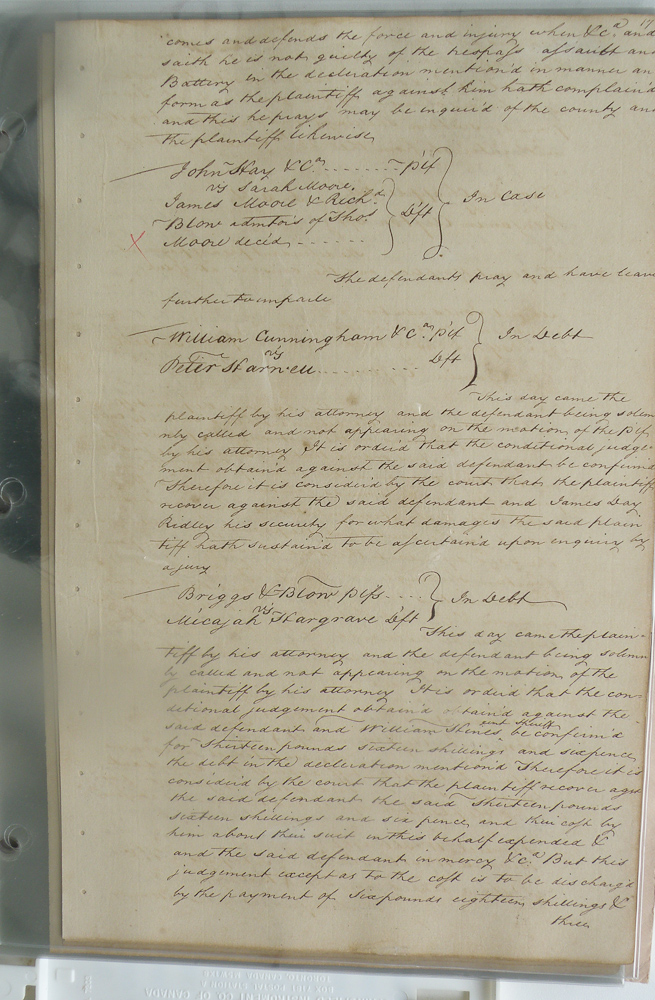 comes and defends the force and injury when &c.a and
saith he is not guilty of the trespass assault and
Battery in the decleration mention'd in manner an
form as the plaintiff against him hath complain'd
and this he prays may be inquir'd of the county and
the plaintiff likewise
John Hay & Ca. - - - - - - - - Plf
vs Sarah Moore,
James Moore & Richd. In Case
Blow admtors of Thos. Dft
Moore decd. - - - - - -
The defendants pray and have leave
further to imparle
William Cunningham & Ca. Plf In Debt
vs
Peter Harwell - - - - - - - - Dft
This day came the
plaintiff by his attorney and the defendant being solem
nly called and not appearing on the motion of the Plf
by his attorney It is ordr'd that the conditional judge-
ment obtain'd against the said defendant be confirm'd
Therefore it is consider'd by the court that the plaintiff
recover against the said defendant and James Day
Ridley his security for what damages the said plain
tiff hath sustain'd to be ascertain'd upon enquiry by
a jury
Briggs & Blow Plfs - - - In Debt
vs
Micajah Hargrave Dft
This day came the plain-
tiff by his attorney and the defendant being solemn
ly called and not appearing on the motion of the
plaintiff by his attorney It is ordr'd that the con-
ditional judgement obtain'd obtain'd against the
said defendant and William Hines Sheriff be confirm'd
for Thirteen pounds sixteen shillings and sixpence,
the debt in the decleration mention'd Therefore it is
consider'd by the court that the plaintiff recover agst
the said defendant the said Thirteen pounds
sixteen shillings and six pence, and their cost by
him about their suit in this behalf expended &
and the said defendant in mercy &c.a But this
judgement except as to the cost is to be discharg'd
by the payment of Six pounds eighteen shillings &
three